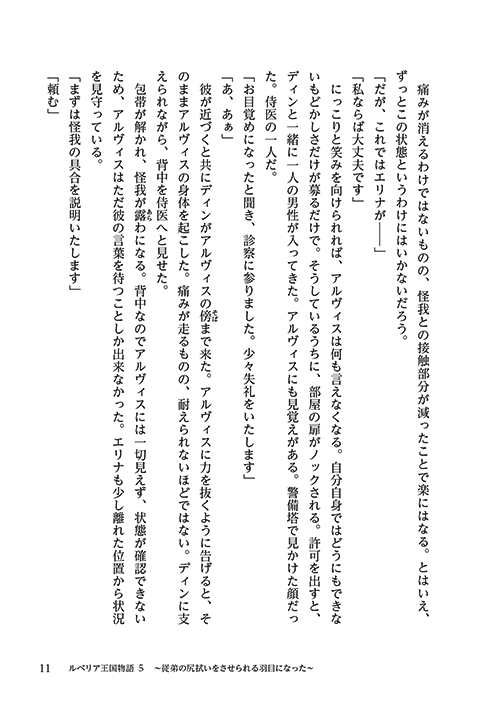 痛みが消えるわけではないものの、怪我との接触部分が減ったことで楽にはなる。とはいえ、
ずっとこの状態というわけにはいかないだろう。
「だが、これではエリナが――」
「私ならば大丈夫です」
　にっこりと笑みを向けられれば、アルヴィスは何も言えなくなる。自分自身ではどうにもできな
いもどかしさだけが募るだけで。そうしているうちに、部屋の扉がノックされる。許可を出すと、
ディンと一緒に一人の男性が入ってきた。アルヴィスにも見覚えがある。警備塔で見かけた顔だっ
た。侍医の一人だ。
「お目覚めになったと聞き、診察に参りました。少々失礼をいたします」
「あ、あぁ」
　彼が近づくと共にディンがアルヴィスの傍まで来た。アルヴィスに力を抜くように告げると、そ
のままアルヴィスの身体を起こした。痛みが走るものの、耐えられないほどではない。ディンに支
えられながら、背中を侍医へと見せた。
　包帯が解かれ、怪我が露わになる。背中なのでアルヴィスには一切見えず、状態が確認できない
ため、アルヴィスはただ彼の言葉を待つことしか出来なかった。エリナも少し離れた位置から状況
を見守っている。
「まずは怪我の具合を説明いたします」
「頼む」
11　ルベリア王国物語 5　～従弟の尻拭いをさせられる羽目になった～